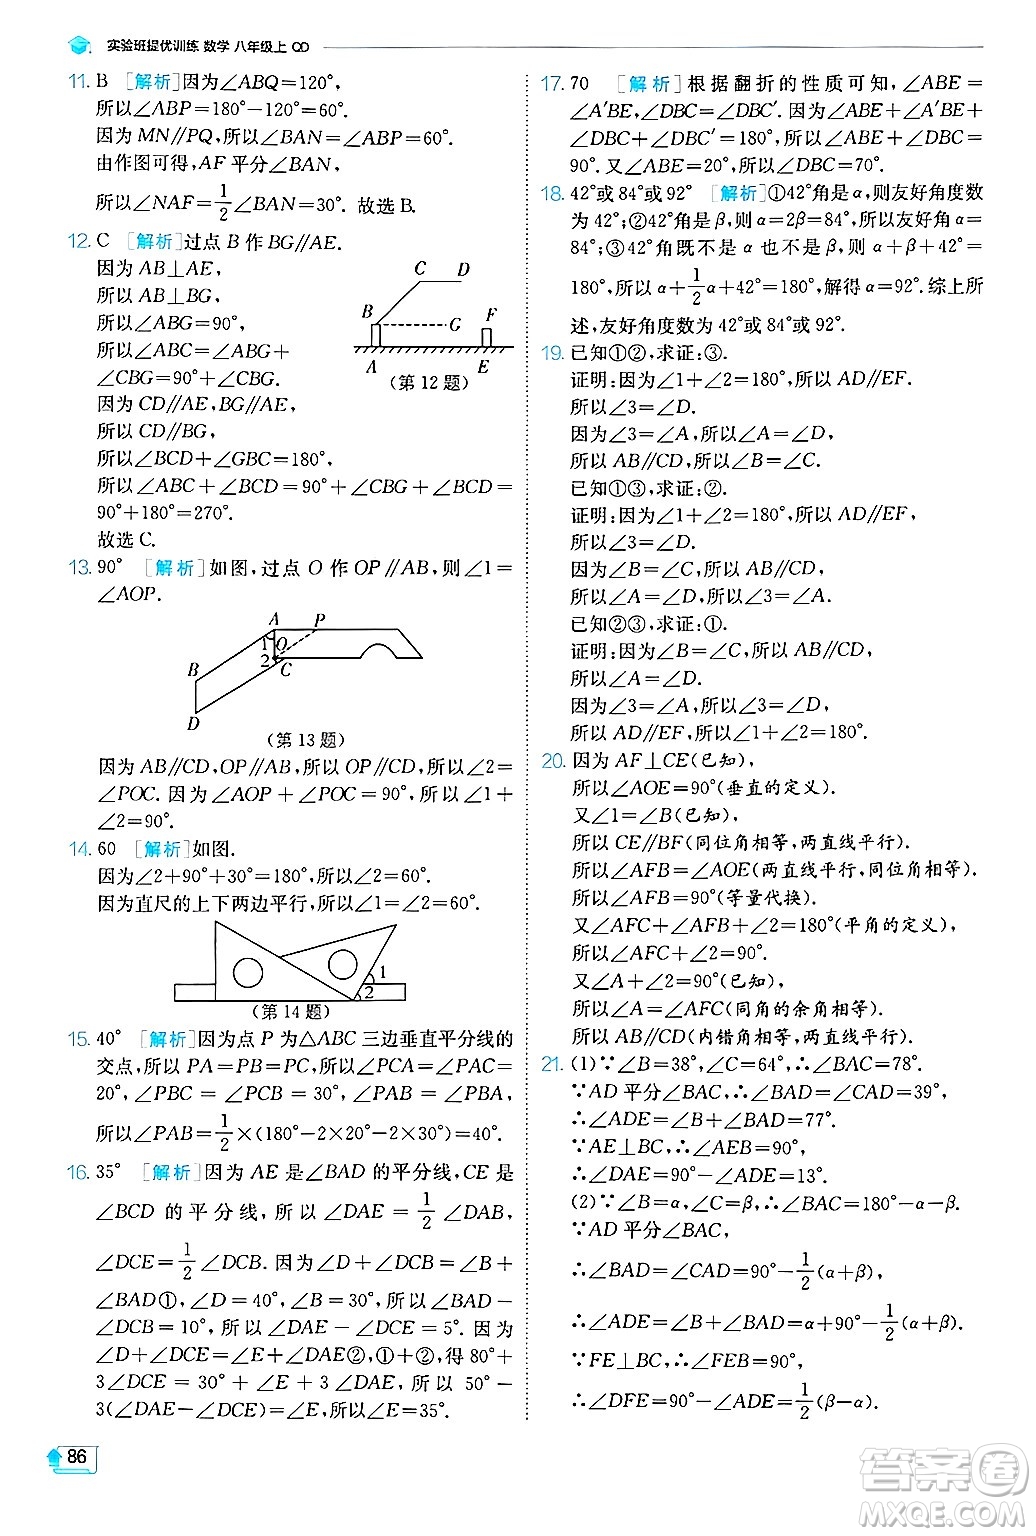 实验班提优训练 数学 八年级上 QD
11. B [解析]因为∠ABQ=120°,
所以∠ABP=180°-120°=60°.
因为 MN//PQ,所以∠BAN=∠ABP=60°.
由作图可得,AF 平分∠BAN,
所以∠NAF=1/2∠BAN=30°. 故选 B.
12. C [解析]过点 B 作 BG//AE.
因为 AB⊥AE,
所以 AB⊥BG,
所以∠ABG=90°,
所以∠ABC=∠ABG+
∠CBG=90°+∠CBG.
因为 CD//AE,BG//AE,
所以 CD//BG,
所以∠BCD+∠GBC=180°,
C D
B G F
A E
(第 12 题)
所以∠ABC+∠BCD=90°+∠CBG+∠BCD=
90°+180°=270°.
故选 C.
13. 90° [解析]如图,过点 O 作 OP//AB,则∠1=
∠AOP.
A P
1 O
B 2 C
D
(第 13 题)
因为 AB//CD,OP//AB,所以 OP//CD,所以∠2=
∠POC. 因为∠AOP+∠POC=90°,所以∠1+
∠2=90°.
14. 60 [解析]如图.
因为∠2+90°+30°=180°,所以∠2=60°.
因为直尺的上下两边平行,所以∠1=∠2=60°.
1
2
(第 14 题)
15. 40° [解析]因为点 P 为△ABC 三边垂直平分线的
交点,所以 PA=PB=PC,所以∠PAC=∠PCA=
20°,∠PBC=∠PCB=30°,∠PAB=∠PBA,
所以∠PAB=1/2×(180°-2×20°-2×30°)=40°.
16. 35° [解析]因为 AE 是∠BAD 的平分线,CE 是
∠BCD 的平分线,所以∠DAE=1/2∠DAB,
∠DCE=1/2∠DCB. 因为∠D+∠DCB=∠B+
∠BAD①,∠D=40°,∠B=30°,所以∠BAD-
∠DCB=10°,所以∠DAE-∠DCE=5°. 因为
∠D+∠DCE=∠E+∠DAE②,①+②,得 80°+
3∠DCE=30°+∠E+3∠DAE. 所以 50°-
3(∠DAE-∠DCE)=∠E=35°.
17. 70 [解析]根据翻折的性质可知,∠ABE=
∠A′BE,∠DBC=∠DBC′. 因为∠ABE+∠A′BE+
∠DBC+∠DBC′=180°,所以∠ABE+∠DBC=
90°.又∠ABE=20°,所以∠DBC=70°.
18. 42°或84°或92° [解析]①42°角是α,则友好角度数
为42°;②42°角是β,则α=2β=84°,所以友好角α=
84°;③42°角既不是α也不是β,则α+β+42°=
180°,所以α+1/2α+42°=180°,解得α=92°.综上所
述,友好角度数为42°或84°或92°.
19. 已知①②,求证:③.
证明:因为∠1+∠2=180°,所以 AD//EF.
所以∠3=∠D.
因为∠3=∠A,所以∠A=∠D,
所以 AB//CD,所以∠B=∠C.
已知①③,求证:②.
证明:因为∠1+∠2=180°,所以 AD//EF,
所以∠3=∠D. 因为∠B=∠C,所以 AB//CD,
所以∠A=∠D,所以∠3=∠A.
已知②③,求证:①.
证明:因为∠B=∠C,所以 AB//CD,
所以∠A=∠D.
因为∠3=∠A,所以∠3=∠D,
所以 AD//EF,所以∠1+∠2=180°.
20. 因为 AF⊥CE(已知),
所以∠AOE=90°(垂直的定义).
又∠1=∠B(已知),
所以 CE//BF(同位角相等,两直线平行),
所以∠AFB=∠AOE(两直线平行,同位角相等),
所以∠AFB=90°(等量代换).
又∠AFC+∠AFB+∠2=180°(平角的定义),
所以∠AFC+∠2=90°.
又∠A+∠2=90°(已知),
所以∠A=∠AFC(同角的余角相等),
所以 AB//CD(内错角相等,两直线平行).
21. (1)∵∠B=38°,∠C=64°,∴∠BAC=78°.
∵AD 平分∠BAC,∴∠BAD=∠CAD=39°,
∴∠ADE=∠B+∠BAD=77°.
∵AE⊥BC,∴∠AEB=90°,
∴∠DAE=90°-∠ADE=13°.
(2)∵∠B=α,∠C=β,∴∠BAC=180°-α-β.
∵AD 平分∠BAC,
∴∠BAD=∠CAD=90°-1/2(α+β),
∴∠ADE=∠B+∠BAD=α+90°-1/2(α+β).
∵FE⊥BC,∴∠FEB=90°,
∴∠DFE=90°-∠ADE=1/2(β-α).
86
答案圈
MXQE.COM